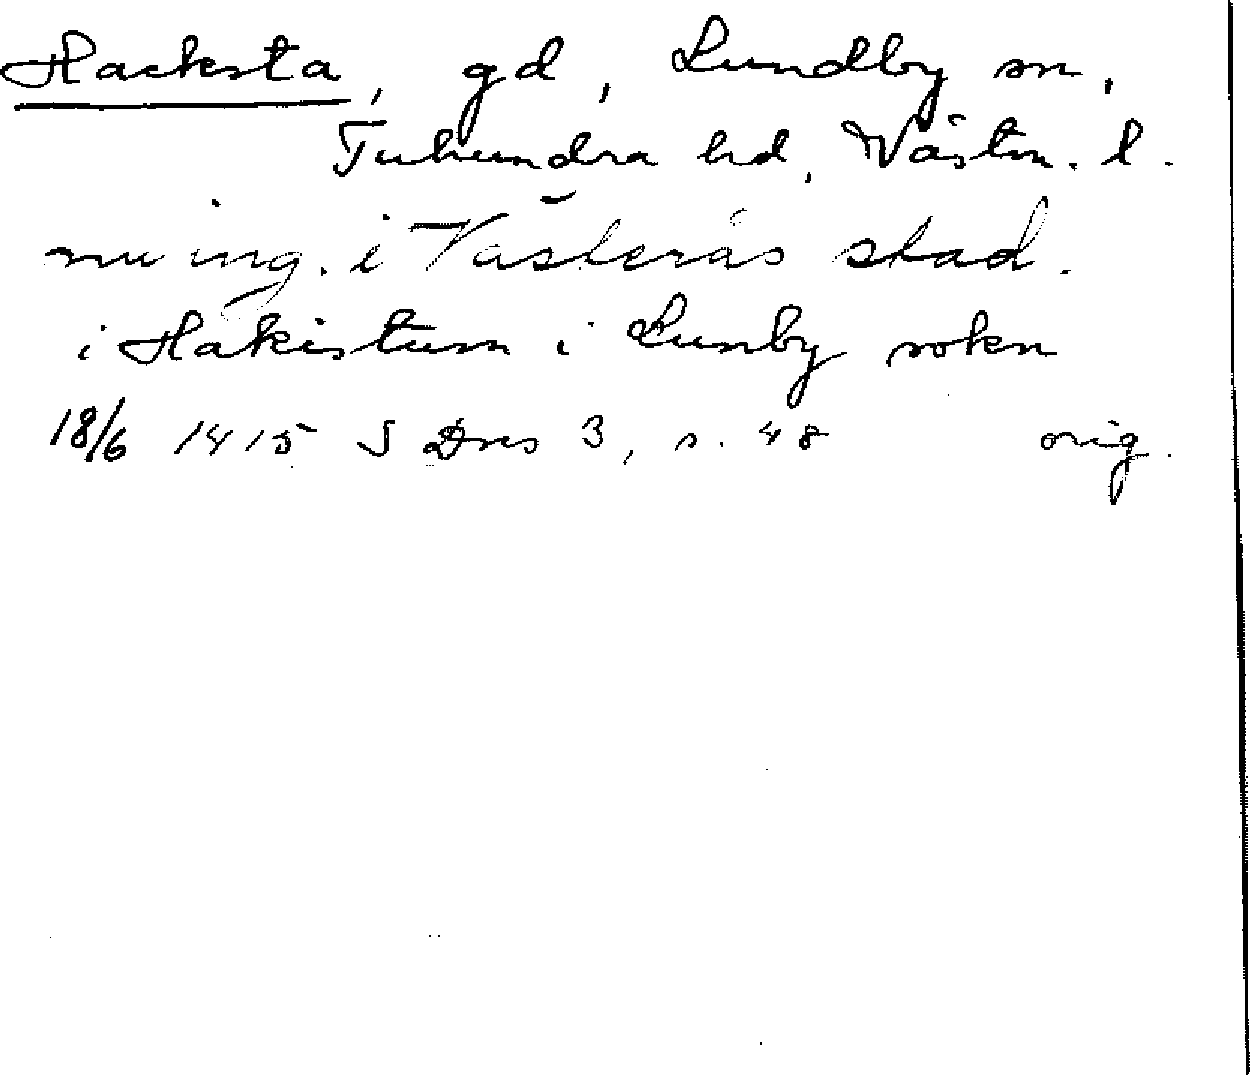 Hacksta, gd, Lundby sn,
Tuhundra hd, Västm. l.
nu ing. i Västerås stad.
i Hakistum i Lunby sokn
18/6 1415 S Dns 3, s. 48 orig.